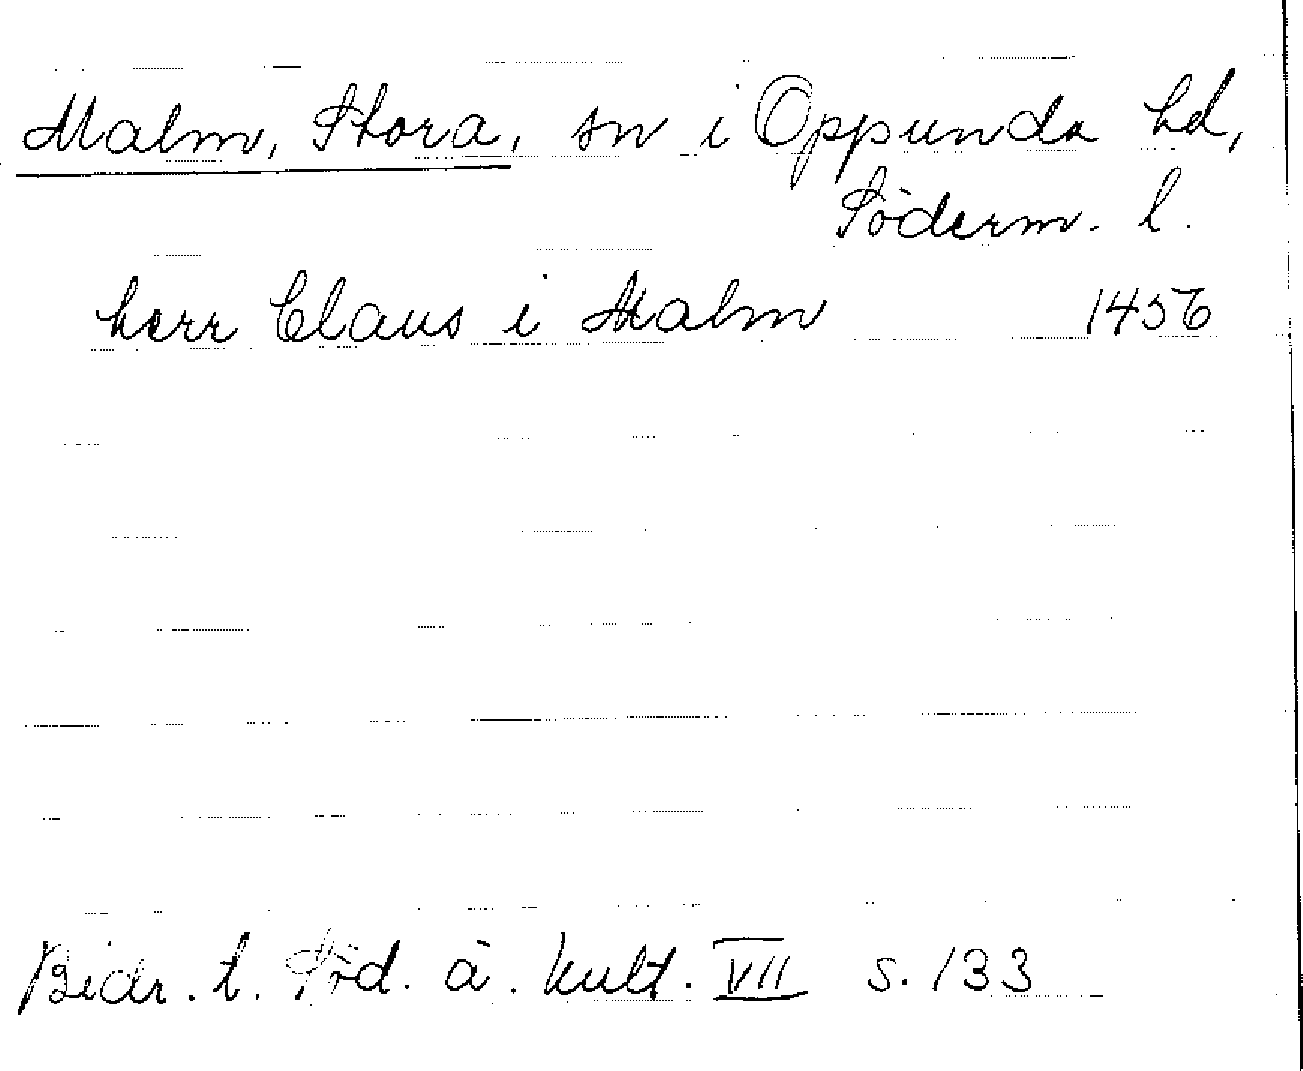 Malm, Stora, sn i Oppunda hd,
Söderm. l.
herr Claus i Malm 1456
Bidr. t. Söd. ä. kult. VII s. 133